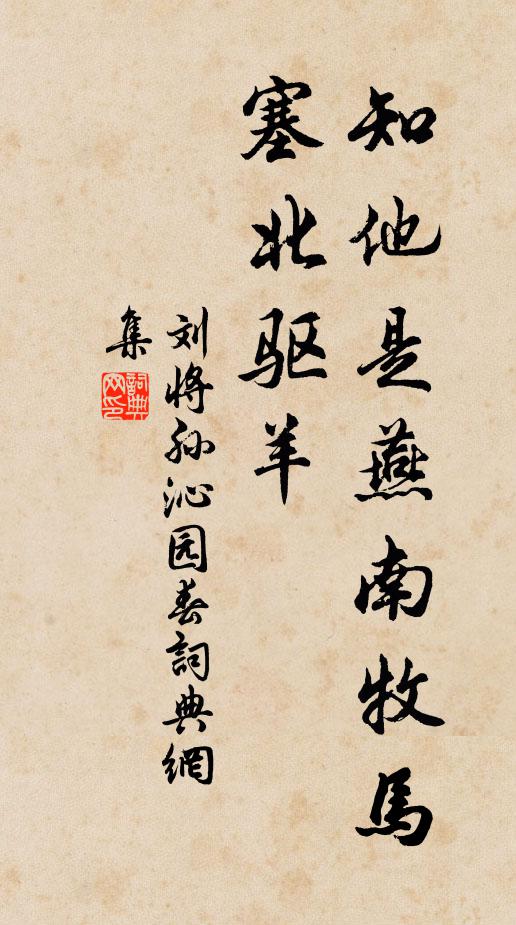 知他是燕南牧馬
塞北驱羊
刘将孙沁园春詞典網
集
詞典
网印